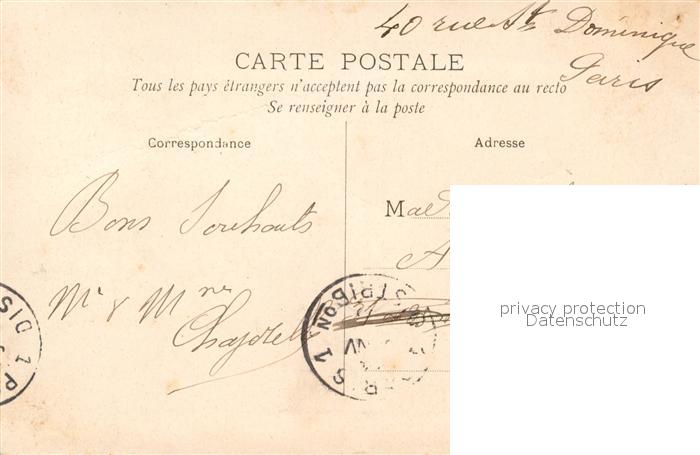 40 rue St Dominique
Paris
CARTE POSTALE
Tous les pays étrangers n'acceptent pas la correspondance au recto
Se renseigner à la poste
Correspondance
Adresse
Bons Souhaits
Mr & Mme
Mad
privacy protection
Datenschutz
DISTRIBON
DIS